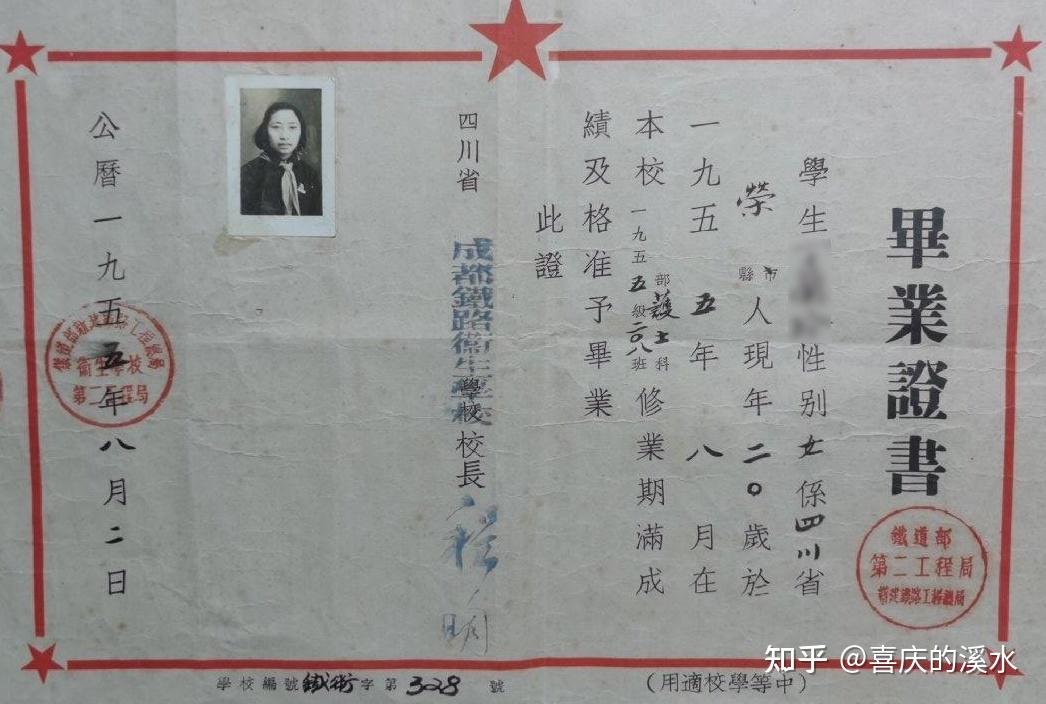 畢業證書
鐵道部
第二工程局
新建鐵路工程總局
學生
性別女係四川省
榮
縣市
人現年二〇歲於
一九五五年八月在
本校一九五五級二八班
部護士科
修業期滿成
績及格准予畢業
此證
四川省
成都鐵路衛生學校
學校校長
公曆一九五五年八月二日
衛生學校
第二工程局
學校編號鐵衛字第328號
(中等學校適用)
知乎 @喜庆的溪水